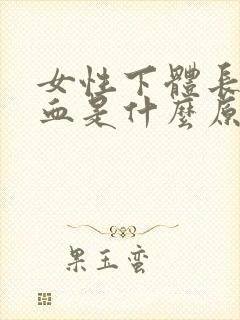 女性下體長
血是什麼原
果玉蛮